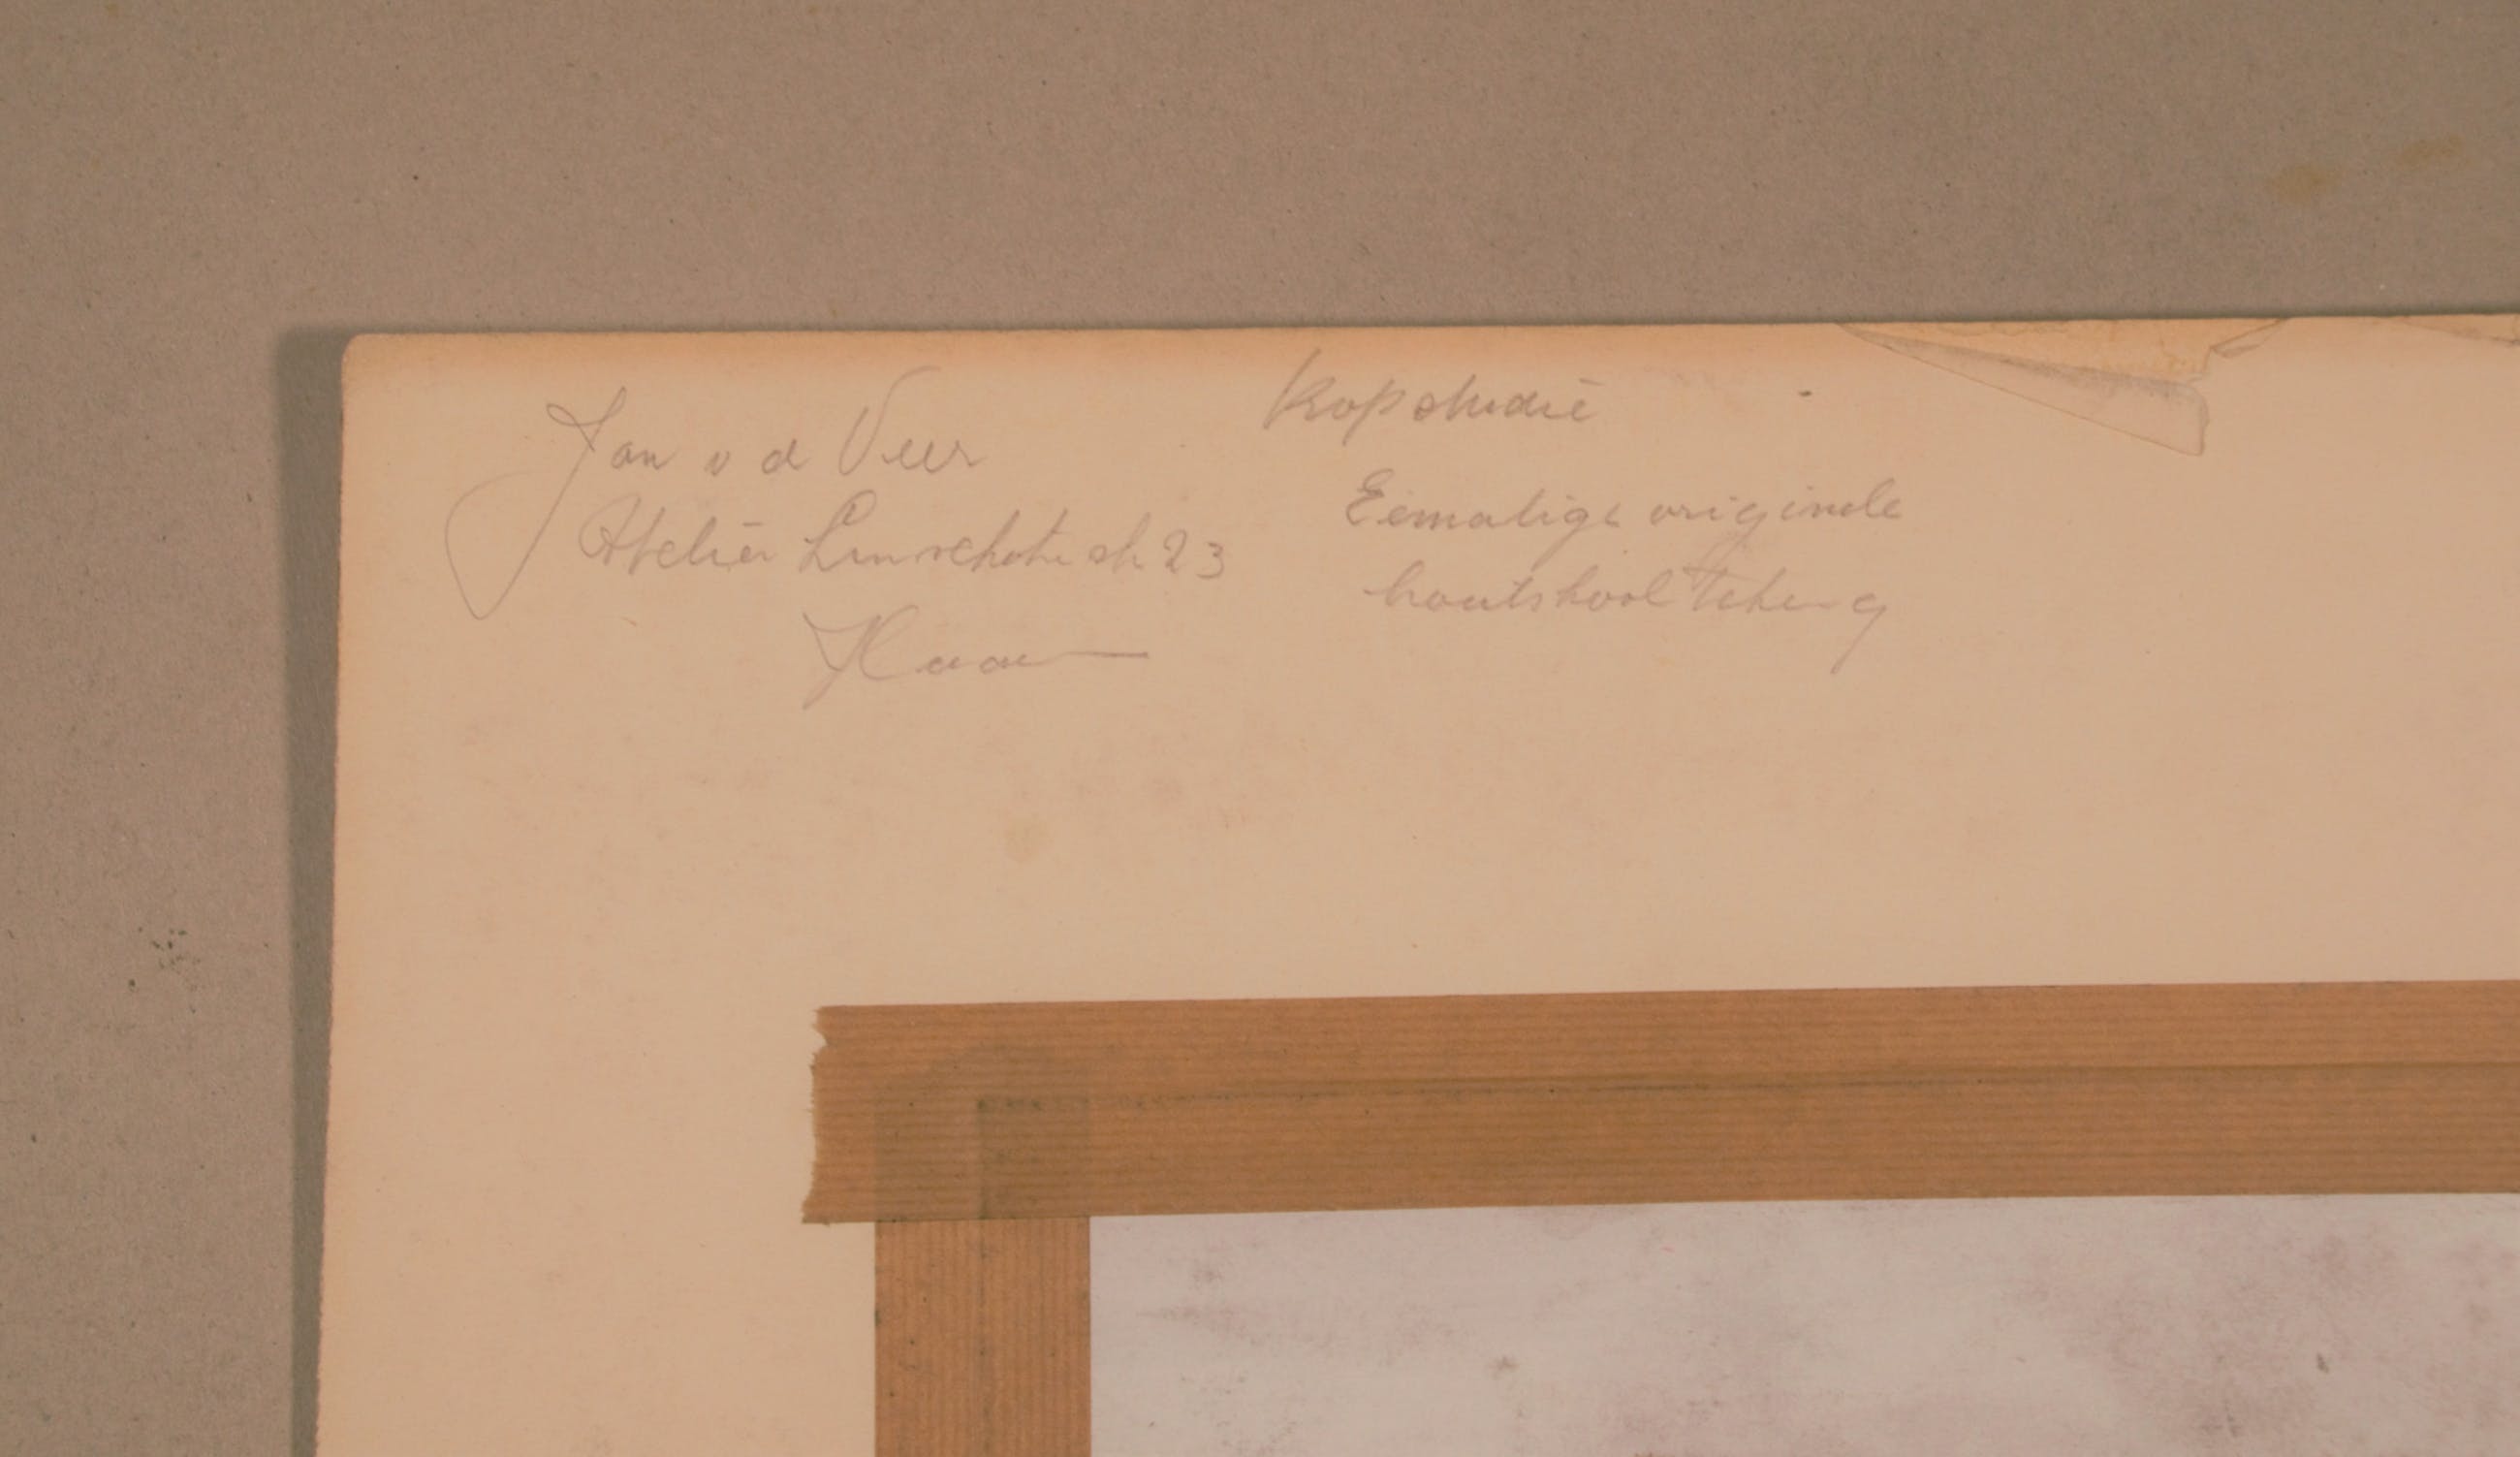 Jan v d Veer
Atelier Linschote str 23
Haar
Kopstudie
Eenmalige originele
houtskool tekening